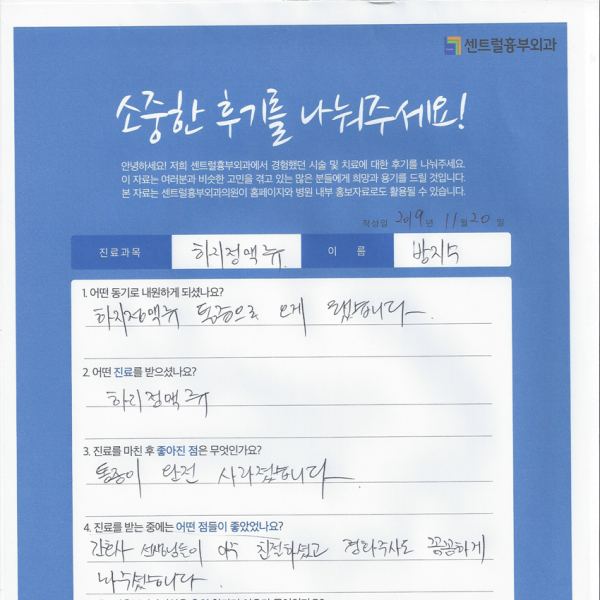 센트럴흉부외과
소중한 후기를 나눠주세요!
안녕하세요! 저희 센트럴흉부외과에서 경험했던 시술 및 치료에 대한 후기를 나눠주세요.
이 자료는 여러분과 비슷한 고민을 겪고 있는 많은 분들에게 희망과 용기를 드릴 것입니다.
본 자료는 센트럴흉부외과의원이 홈페이지와 병원 내부 홍보자료로도 활용될 수 있습니다.
작성일 2019년 11월 20일
진료과목 하지정맥류 이 름 방지
1. 어떤 동기로 내원하게 되셨나요?
하지정맥류 통증으로 오게 됐습니다.
2. 어떤 진료를 받으셨나요?
하지정맥류
3. 진료를 마친 후 좋아진 점은 무엇인가요?
통증이 완전 사라졌습니다.
4. 진료를 받는 중에는 어떤 점들이 좋았었나요?
간호사 선생님들이 아주 친절하셨고 경화주사도 꼼꼼하게
놔주셨습니다.